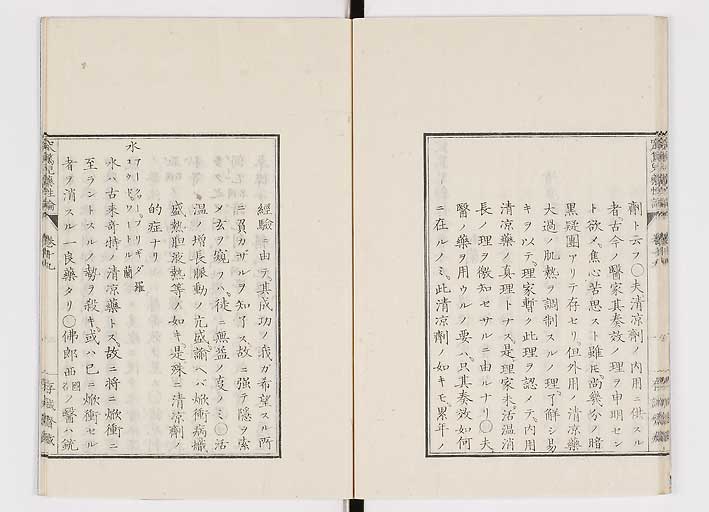 劑ト云フ〇夫清凉劑ノ内用ニ供スル
者古今ノ醫家其奏效ノ理ヲ申明セン
ト欲メ焦心苦思スト雖モ尚幾分ノ暗
黒疑團アリテ存セリ但外用ノ清凉藥
大過ノ肌熱ヲ調制スルノ理ハ了解シ易
キヲ以テ理家暫ク此理ヲ認メテ内用
清凉藥ノ真理トナス是理家未活温消
長ノ理ヲ徴知セサルニ由ルナリ〇夫
醫ノ藥ヲ用ウルノ要ハ只其奏效如何
ニ在ルノミ此清凉劑ノ如キモ累年ノ
經驗ニ由テ其成功ノ我ガ希望スル所
ニ負カザルヲ知ノミ故ニ強テ隠ヲ索
メ玄ヲ窺フハ徒ニ無益ノ ノミ〇活
温ノ増長脈動ノ亢盛諭ヘバ焮衝病熾
盛熱胆液熱等ノ如キ是殊ニ清凉劑ノ
的症ナリ
水 アークワ、フリギダ 羅
コウド、ワートル 蘭
氷ハ古来奇特ノ清凉藥トス故ニ將ニ焮衝ニ
至ラントスルノ勢ヲ殺キ或ハ已ニ焮衝セル
者ヲ消スル一良藥タリ〇佛郎西國ノ醫ハ銃